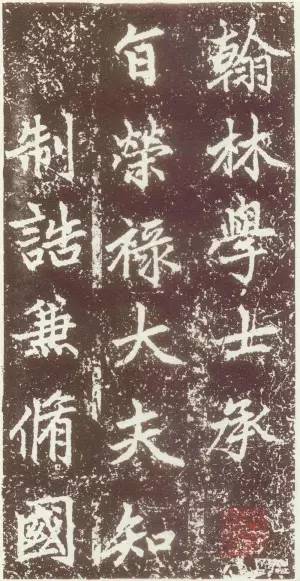 翰林學士承
旨榮祿大夫知
制誥兼脩國